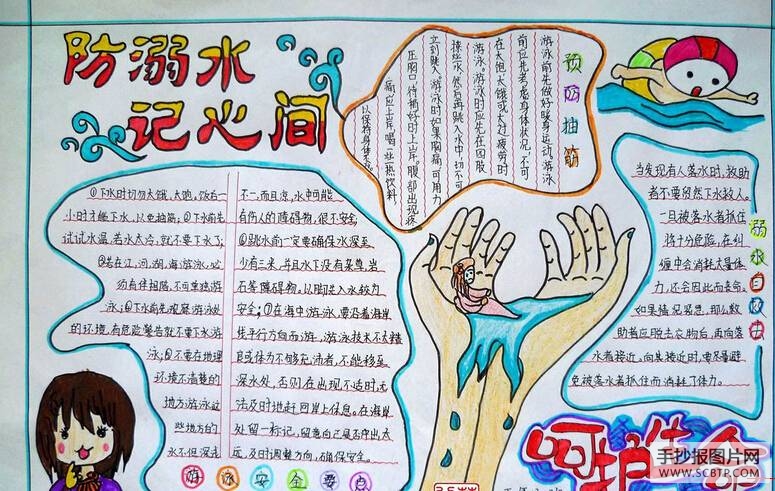 防溺水
记心间
预防抽筋
游泳前先做好暖身运动。游泳
前应先考虑身体状况,不可
在太饱太饿或太过疲劳时
游泳。游泳时应先在四肢
撩些水,然后再跳入水中,切不可
立刻跳入。游泳时如果胸痛,可用力
压胸口,待稍好时上岸。腹部出现疼
痛应上岸喝一些热饮料,
以保持身体
①下水时切勿太饿、太饱,饭后一
小时才能下水,以免抽筋;②下水前先
试试水温,若水太冷,就不要下水了;
③若在江、河、湖、海游泳,必
须有伴相陪,不可单独游
泳;④下水前先观察游泳处
的环境,有危险警告就不要下水游
泳;⑤不要在地理
环境不清楚的
地方游泳,这
些地方的
水不但深浅
不一,而且凉,水中可能
有伤人的障碍物,很不安全
⑥跳水前一定要确保水深至
少有三米,并且水下没有杂草,岩
石等障碍物。以脚先入水较为
安全;⑦在海中游泳,要沿着海岸
线平行方向而游,游泳技术不太精
良或体力不够充沛者,不能移至
深水处,否则在出现不适时,无
法及时地赶回岸上休息。在海岸
处留一标记,留意自己是否漂出太
远,及时调整方向,确保安全。
游泳安全要点
溺水自救
当发现有人落水时,救助
者不要贸然下水救人。
一旦被落水者抓住
将十分危险,在纠
缠中会消耗大量体
力,还会因此而丧命。
如果情况紧急,那么救
助者应脱去衣物后,再向落
水者接近。向其接近时,要尽量避
免被落水者抓住而消耗了体力。
呵护生命
手抄报图片网
WWW.SCBTP.COM